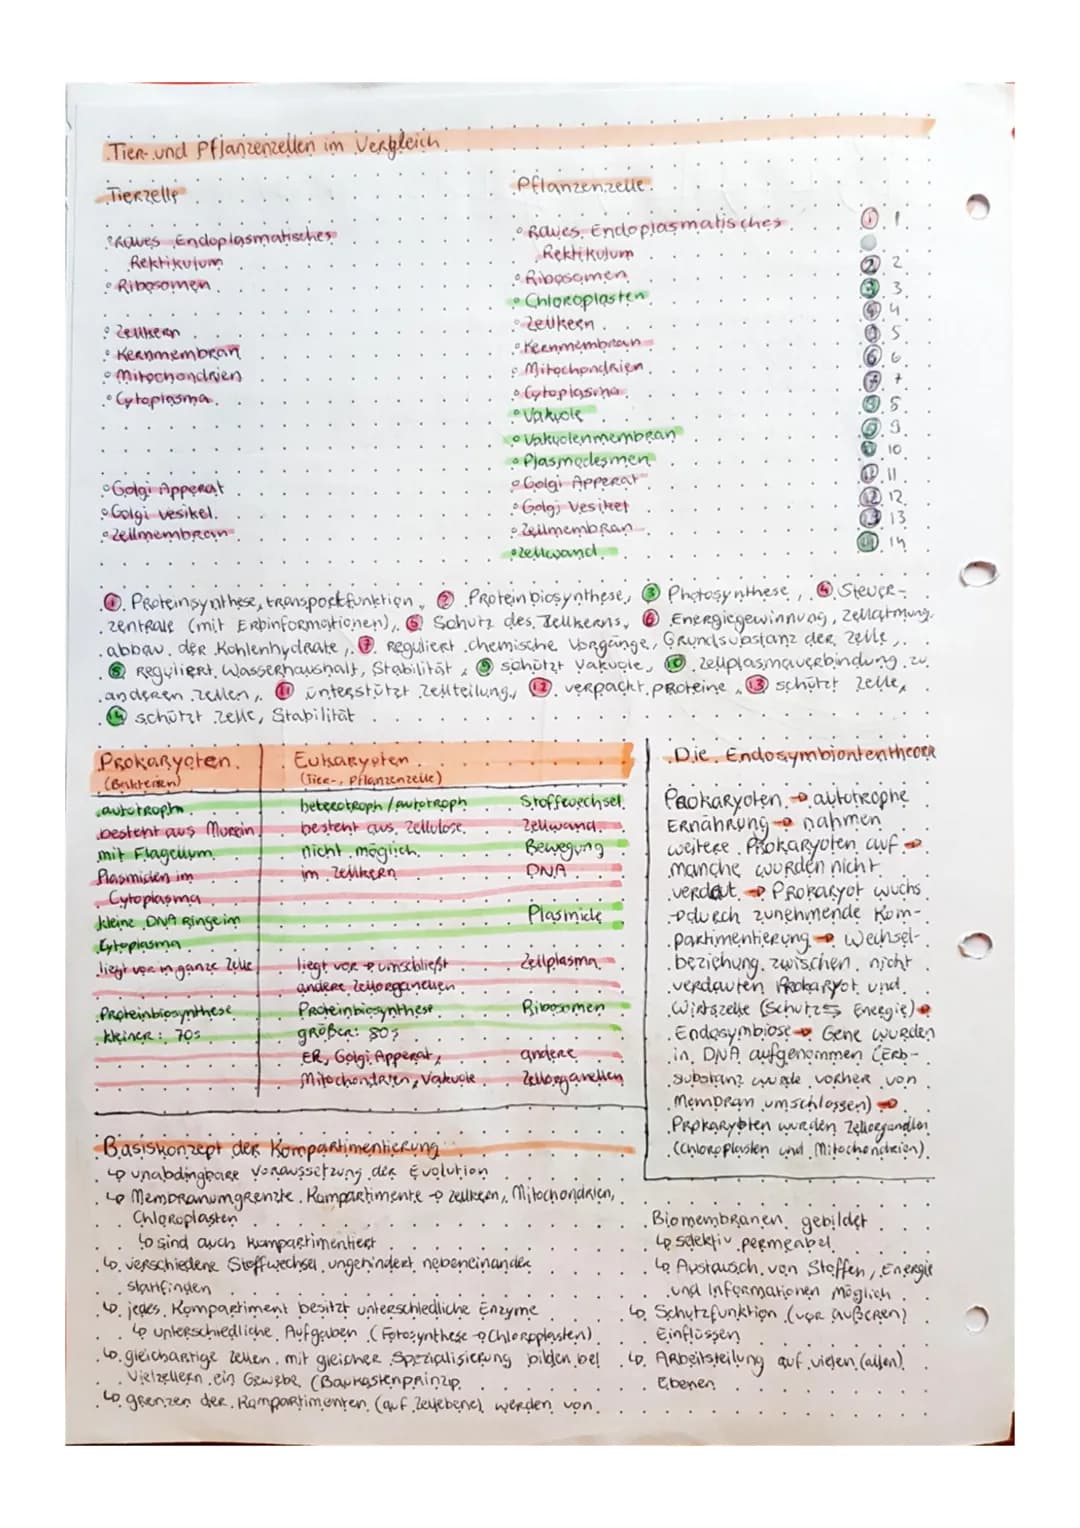 Tier- und Pflanzenzellen im Vergleich
Tierzelle
Pflanzenzelle
Raues Endoplasmatisches
Rektikulum
Ribosomen
Zellkern
Kernmembran
Mitochondrien
Cytoplasma
Golgi Apperat
Golgi vesikel
Zellmembran
Raues Endoplasmatisches
Rektikulum
Ribosomen
Chloroplasten
Zellkern
Kernmembran
Mitochondrien
Cytoplasma
Vakuole
Vakuolenmembran
Plasmodesmen
Golgi Apperat
Golgi Vesikel
Zellmembran
Zellwand
① 1
② 2
③ 3
④ 4
⑤ 5
⑥ 6
⑦ 7
⑧ 8
⑨ 9
⑩ 10
⑪ 11
⑫ 12
⑬ 13
⑭ 14
① Proteinsynthese, transportfunktion, ② Proteinbiosynthese, ③ Photosynthese, ④ Steuer-
zentrale (mit Erbinformationen), ⑤ Schutz des Zellkerns, ⑥ Energiegewinnung, Zellatmung
abbau der Kohlenhydrate, ⑦ Reguliert chemische Vorgänge, Grundsubstanz der Zelle,
⑧ Reguliert Wasserhaushalt, Stabilität, ⑨ schützt Vakuole, ⑩ zellplasmaverbindung zu
anderen zellen, ⑪ unterstützt Zellteilung, ⑫ verpackt proteine, ⑬ schützt Zelle,
⑭ schützt Zelle, Stabilität
Prokaryoten
(Bakterien)
Eukaryoten
(Tier-, Pflanzenzelle)
autotroph heterotroph/autotroph Stoffwechsel
besteht aus Murein besteht aus Zellulose Zellwand
mit Flagellum nicht möglich Bewegung
Plasmiden im im Zellkern DNA
Cytoplasma
kleine DNA Ringe im Plasmide
Cytoplasma
liegt vor in ganze Zelle liegt vor → umschließt Zellplasma
andere Zellorganellen
Proteinbiosynthese Proteinbiosynthese Ribosomen
kleiner: 70s größer: 80s
ER, Golgi Apperat, andere
Mitochondrien, Vakuole Zellorganellen
Die Endosymbiontentheorie
Prokaryoten → autotrophe
Ernährung → nahmen
weitere Prokaryoten auf →
manche wurden nicht
verdaut → Prokaryot wuchs
→ durch zunehmende Kom-
partimentierung → Wechsel-
beziehung zwischen nicht
verdauten Prokaryot und
Wirtszelle (Schutz ⇆ Energie) →
Endosymbiose → Gene wurden
in DNA aufgenommen (Erb-
substanz wurde vorher von
Membran umschlossen) →
Prokaryoten wurden Zellorganellen
(Chloroplasten und Mitochondrien)
Basiskonzept der Kompartimentierung
↳ unabdingbare Voraussetzung der Evolution
↳ Membranumgrenzte Kompartimente → Zellkern, Mitochondrien,
Chloroplasten
↳ sind auch kompartimentiert
↳ verschiedene Stoffwechsel ungehindert nebeneinander
stattfinden
↳ jedes Kompartiment besitzt unterschiedliche Enzyme
↳ unterschiedliche Aufgaben (Fotosynthese → Chloroplasten)
↳ gleichartige Zellen mit gleicher Spezialisierung bilden bei
Vielzellern ein Gewebe (Baukastenprinzip
↳ grenzen der Kompartimenten (auf Zellebene) werden von
Biomembranen gebildet
↳ selektiv permeabel
↳ Austausch von Stoffen, Energie
und Informationen möglich
↳ Schutzfunktion (vor äußeren)
Einflüssen
↳ Arbeitsteilung auf vielen (allen)
Ebenen